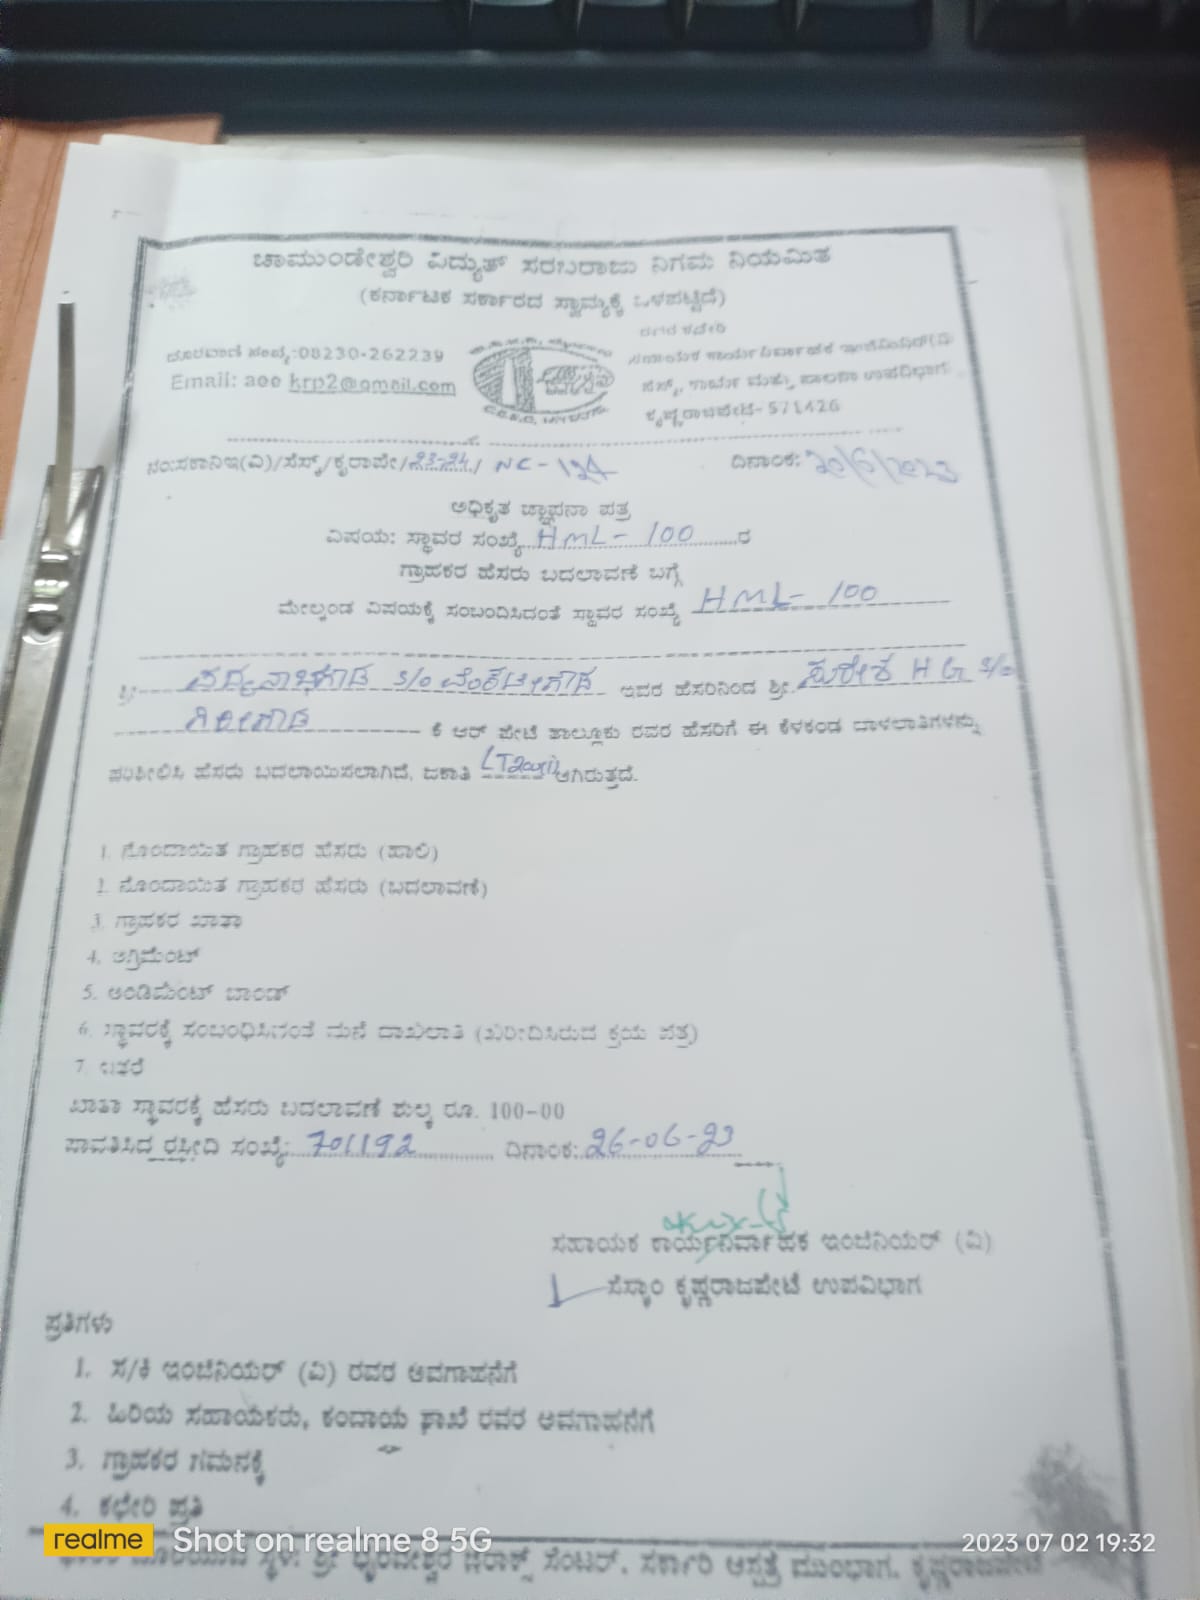 ಚಾಮುಂಡೇಶ್ವರಿ ವಿದ್ಯುತ್ ಸರಬರಾಜು ನಿಗಮ ನಿಯಮಿತ
(ಕರ್ನಾಟಕ ಸರ್ಕಾರದ ಸ್ವಾಮ್ಯಕ್ಕೆ ಒಳಪಟ್ಟಿದೆ)
ದೂರವಾಣಿ ಸಂಖ್ಯೆ:08230-262239
Email: aee krp2@gmail.com
ಸಹಾಯಕ ಕಾರ್ಯನಿರ್ವಾಹಕ ಇಂಜಿನಿಯರ್(ವಿ
ಕಾರ್ಯ ಮತ್ತು ಪಾಲನಾ ಉಪವಿಭಾಗ
ಕೃಷ್ಣರಾಜಪೇಟೆ-571426
ನಂ:ಸಕಾನಿಇ(ವಿ)/ಸೆಸ್ಕ್/ಕೃರಾಪೇ/23-24/ NC-124 ದಿನಾಂಕ: 20/6/2023
ಅಧಿಕೃತ ಜ್ಞಾಪನಾ ಪತ್ರ
ವಿಷಯ: ಸ್ಥಾವರ ಸಂಖ್ಯೆ HML- 100 ರ
ಗ್ರಾಹಕರ ಹೆಸರು ಬದಲಾವಣೆ ಬಗ್ಗೆ
ಮೇಲ್ಕಂಡ ವಿಷಯಕ್ಕೆ ಸಂಬಂದಿಸಿದಂತೆ ಸ್ಥಾವರ ಸಂಖ್ಯೆ HML- 100
ಶ್ರೀ ಪದ್ಮನಾಭಗೌಡ S/o ವೆಂಕಟೇಗೌಡ ಇವರ ಹೆಸರಿನಿಂದ ಶ್ರೀ. ಸುರೇಶ HG S/o
ಗಿರೀಗೌಡ ಕೆ ಆರ್ ಪೇಟೆ ತಾಲ್ಲೂಕು ರವರ ಹೆಸರಿಗೆ ಈ ಕೆಳಕಂಡ ದಾಳಲಾತಿಗಳನ್ನು
ಪರಿಶೀಲಿಸಿ ಹೆಸರು ಬದಲಾಯಿಸಲಾಗಿದೆ, ಜಕಾತಿ ಆಗಿರುತ್ತದೆ.
1. ನೊಂದಾಯಿತ ಗ್ರಾಹಕರ ಹೆಸರು (ಹಾಲಿ)
2. ನೊಂದಾಯಿತ ಗ್ರಾಹಕರ ಹೆಸರು (ಬದಲಾವಣೆ)
3. ಗ್ರಾಹಕರ ಖಾತಾ
4. ಅಗ್ರಿಮೆಂಟ್
5. ಅಂಡಿಮೆಂಟ್ ಬಾಂಡ್
6. ಸ್ಥಾವರಕ್ಕೆ ಸಂಬಂಧಿಸಿದಂತೆ ಮನೆ ದಾಖಲಾತಿ (ಖರೀದಿಸಿರುವ ಕ್ರಯ ಪತ್ರ)
7. ಇತರೆ
ಖಾತಾ ಸ್ಥಾವರಕ್ಕೆ ಹೆಸರು ಬದಲಾವಣೆ ಶುಲ್ಕ ರೂ. 100-00
ಪಾವತಿಸಿದ ರಸೀದಿ ಸಂಖ್ಯೆ: 701192 ದಿನಾಂಕ: 26-06-23
ಸಹಾಯಕ ಕಾರ್ಯನಿರ್ವಾಹಕ ಇಂಜಿನಿಯರ್ (ವಿ)
ಸೆಸ್ಕಾಂ ಕೃಷ್ಣರಾಜಪೇಟೆ ಉಪವಿಭಾಗ
ಪ್ರತಿಗಳು
1. ಸ/ಕಿ ಇಂಜಿನಿಯರ್ (ವಿ) ರವರ ಅವಗಾಹನೆಗೆ
2. ಹಿರಿಯ ಸಹಾಯಕರು, ಕಂದಾಯ ಶಾಖೆ ರವರ ಅವಗಾಹನೆಗೆ
3. ಗ್ರಾಹಕರ ಗಮನಕ್ಕೆ
4. ಕಛೇರಿ ಪ್ರತಿ
ದೊರೆಯುವ ಸ್ಥಳ: ಶ್ರೀ ಭೈರವೇಶ್ವರ ಜೆರಾಕ್ಸ್ ಸೆಂಟರ್, ಸರ್ಕಾರಿ ಆಸ್ಪತ್ರೆ ಮುಂಭಾಗ, ಕೃಷ್ಣರಾಜಪೇಟೆ
realme Shot on realme 8 5G 2023 07 02 19:32